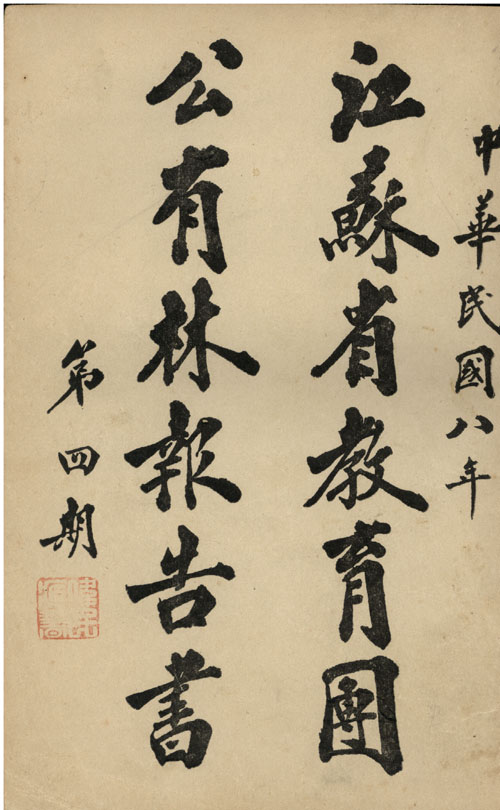 中華民國八年
江蘇省教育團
公有林報告書
第四期